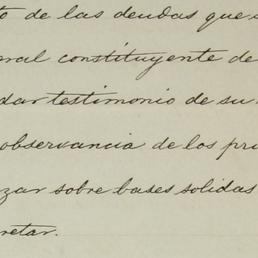 to de las deudas que
ral constituyente de
dar testimonio de su
observancia de los pr
zar sobre bases solidas
retar.